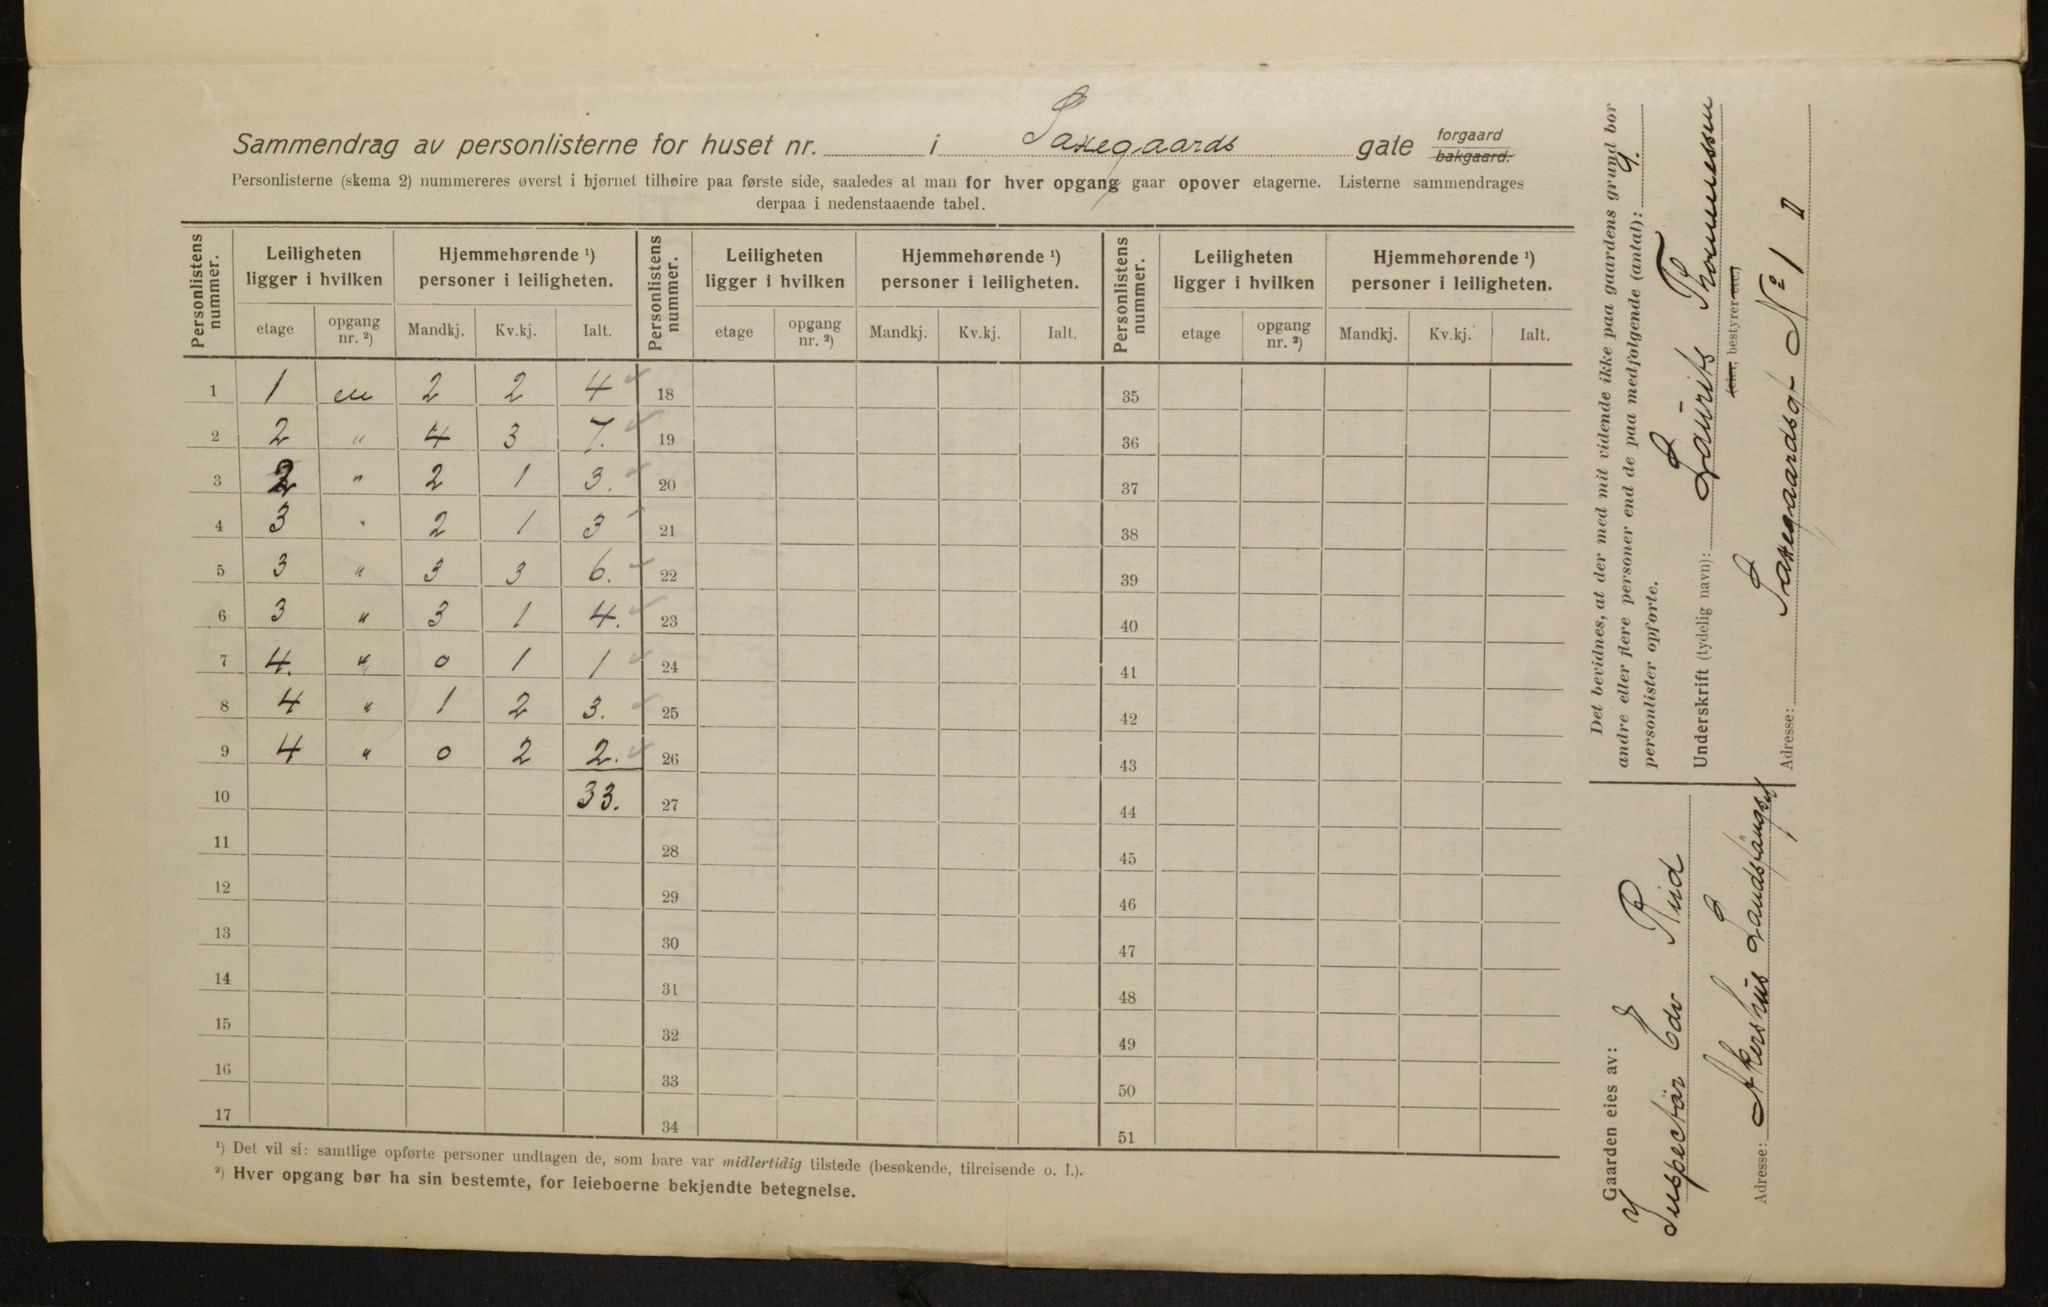 Sammendrag av personlisterne for huset nr. i Saxegaards gate forgaard bakgaard.
Personlisterne (skema 2) nummereres øverst i hjørnet tilhøire paa første side, saaledes at man for hver opgang gaar opover etagerne. Listerne sammendrages
derpaa i nedenstaaende tabel.
Personlistens nummer. Leiligheten ligger i hvilken Hjemmehørende ¹) personer i leiligheten. Personlistens nummer. Leiligheten ligger i hvilken Hjemmehørende ¹) personer i leiligheten. Personlistens nummer. Leiligheten ligger i hvilken Hjemmehørende ¹) personer i leiligheten.
etage opgang nr. ²) Mandkj. Kv.kj. Ialt. etage opgang nr. ²) Mandkj. Kv.kj. Ialt. etage opgang nr. ²) Mandkj. Kv.kj. Ialt.
1 1 en 2 2 4 ✓ 18 35
2 2 " 4 3 7. ✓ 19 36
3 2 " 2 1 3. ✓ 20 37
4 3 " 2 1 3 ✓ 21 38
5 3 " 3 3 6. ✓ 22 39
6 3 " 3 1 4. ✓ 23 40
7 4. " 0 1 1 ✓ 24 41
8 4 " 1 2 3. ✓ 25 42
9 4 " 0 2 2. ✓ 26 43
10 33. 27 44
11 28 45
12 29 46
13 30 47
14 31 48
15 32 49
16 33 50
17 34 51
¹) Det vil si: samtlige opførte personer undtagen de, som bare var midlertidig tilstede (besøkende, tilreisende o. l.).
²) Hver opgang bør ha sin bestemte, for leieboerne bekjendte betegnelse.
Det bevidnes, at der med mit vidende ikke paa gaardens grund bor
andre eller flere personer end de paa medfølgende (antal): 9.
personlister opførte.
Underskrift (tydelig navn): Laurits Thomessen
(eier, bestyrer etc.)
Adresse: Saxegaardsg. No 1 II
Gaarden eies av:
Inspektör Edv Ruud
Adresse: Akershus Landsfängsel